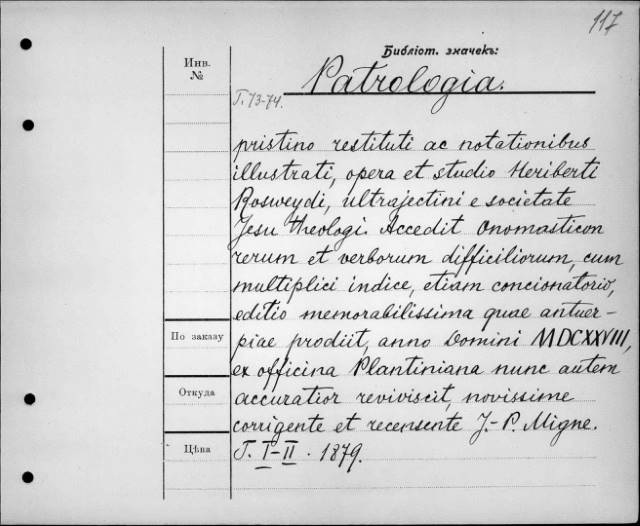 117
Библіот. значекъ:
Инв.
№
Patrologia.
T. 73-74.
pristino restituti ac notationibus
illustrati, opera et studio Heriberti
Rosweydi, ultrajectini e societate
Jesu theologi. Accedit onomasticon
rerum et verborum difficiliorum, cum
multiplici indice, etiam concionatorio,
editio memorabilissima quae antuer-
piae prodiit, anno Domini MDCXXVIII,
ex officina Plantiniana nunc autem
accuratior reviviscit, novissime
corrigente et recensente J.-P. Migne.
T. I-II. 1879.
По заказу
Откуда
Цѣва